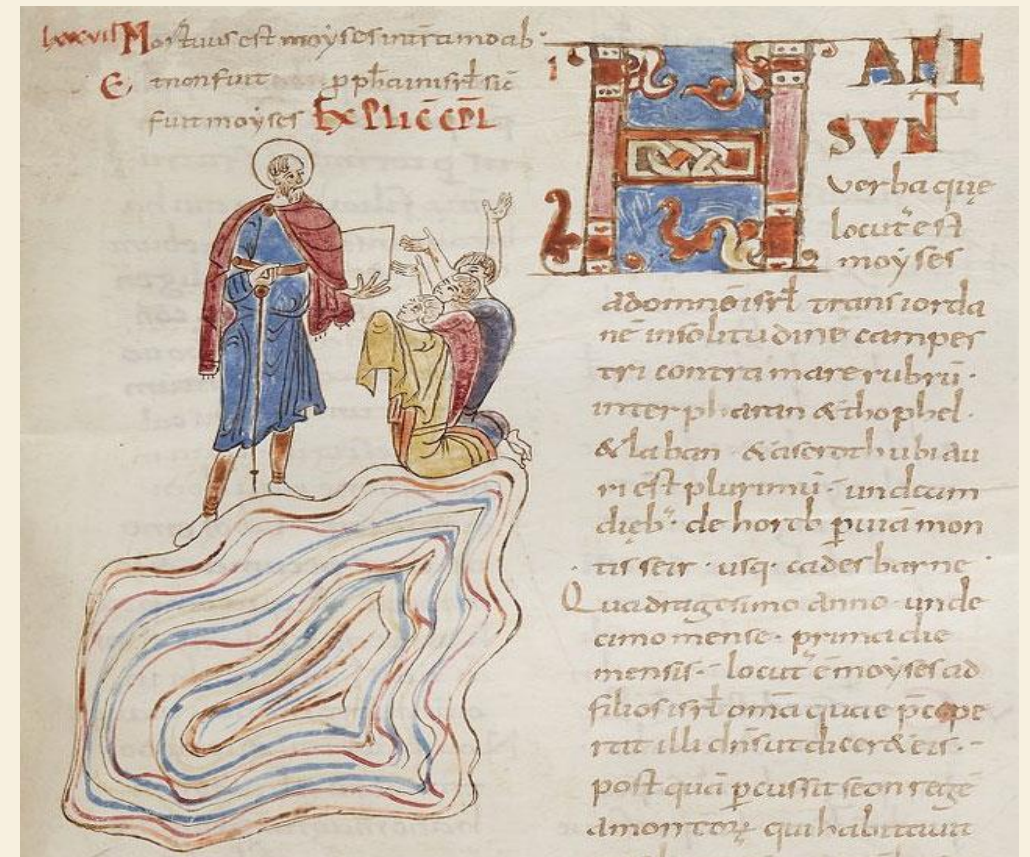 lxxviii Mortuus est moyses in terra moab·
Et non fuit pph̄a in isrl̄ sic
fuit moyses EXPLIC̄ CPL̄
HAEC
SUNT
verba quę
locut' est
moyses
ad omnē isrl̄ trans iorda
nē in solitudine campes
tri contra mare rubrū·
inter pharan & thophel·
& laban · & aseroth ubi au
ri est plurimū· undecim
dieb;· de horeb p uiā mon
tis seir · usq· cades barne·
Quadragesimo anno· unde
cimo mense· prima die
mensis·- locut' ē moyses ad
filios isrl̄ om̄ia quae p̄cepe
rat illi dn̄s ut diceret eis·-
post quā pcussit seon regē
amorreorū qui habitauit